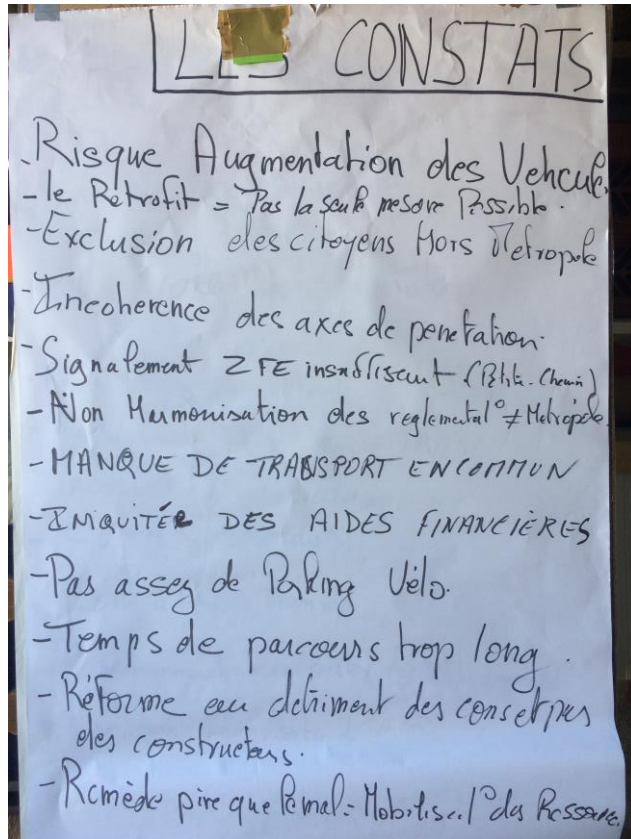 LES CONSTATS
- Risque Augmentation des Vehcule
- le Retrofit = Pas la seule mesure Possible.
- Exclusion des citoyens Hors Metropole
- Incoherence des axes de penetration.
- Signalement ZFE insuffisant (Petits-Chemin)
- Non Harmonisation des reglementat° ≠ Metropole.
- MANQUE DE TRANSPORT EN COMMUN
- INIQUITÉE DES AIDES FINANCIÈRES
- Pas assez de Parking Vélo.
- Temps de parcours trop long.
- Réforme au detriment des
des constructeurs.
- Remède pire que le mal = Mobilisat° des Ressource.